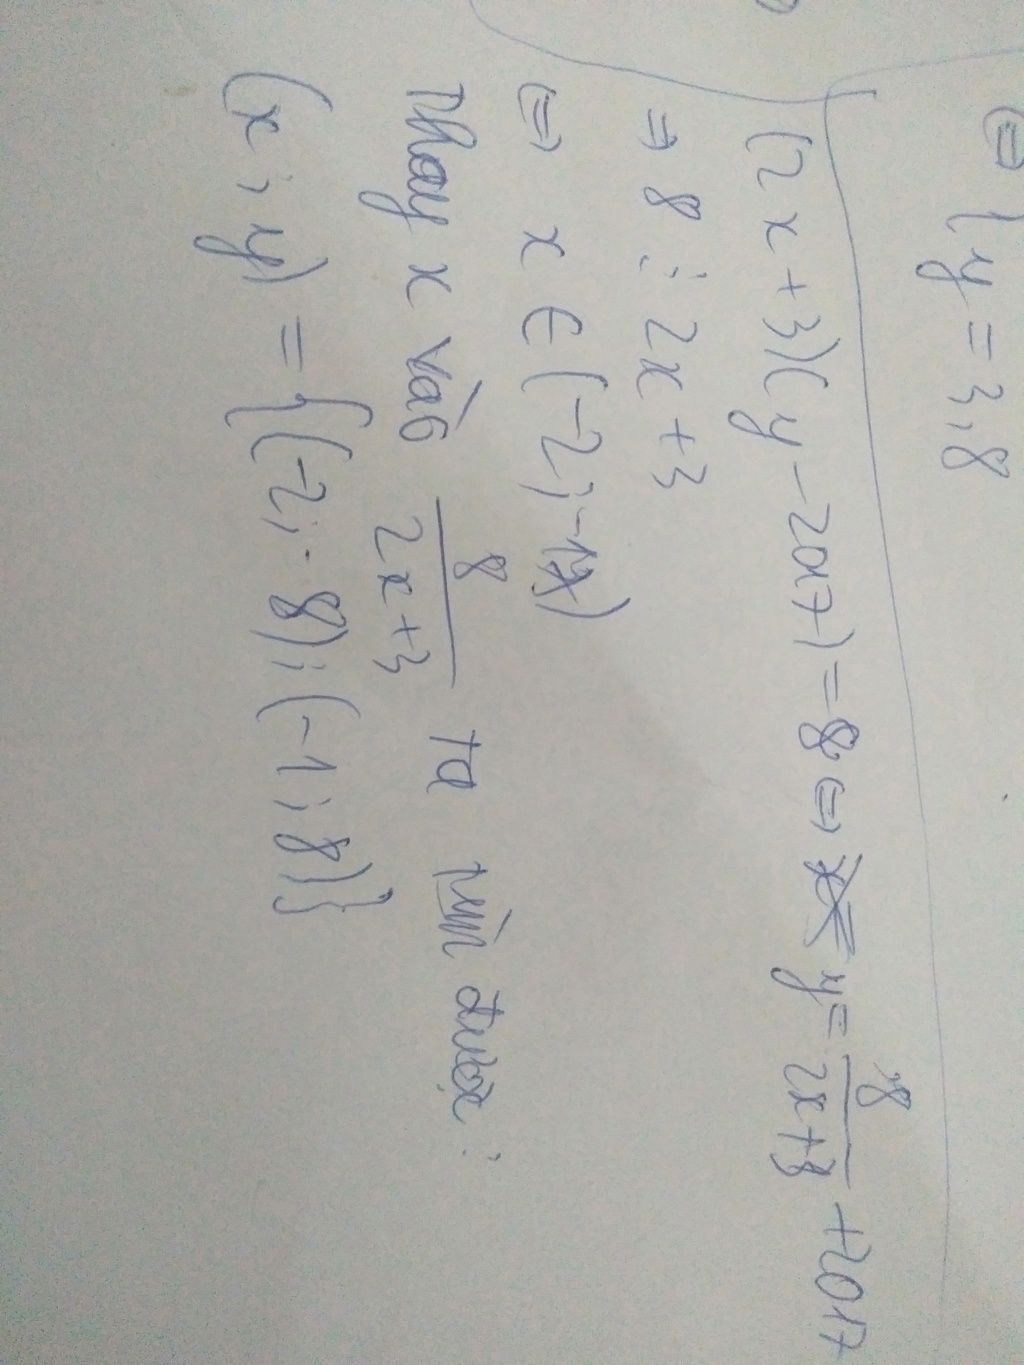 ⇔ { y = 3,8
(2x+3)(y-2017) = 8 ⇔ y = 8/(2x+3) + 2017
⇒ 8 ⋮ 2x+3
⇔ x ∈ (-2; -1)
Thay x vào 8/(2x+3) ta tìm được :
(x ; y) = {(-2; -8); (-1; 8)}